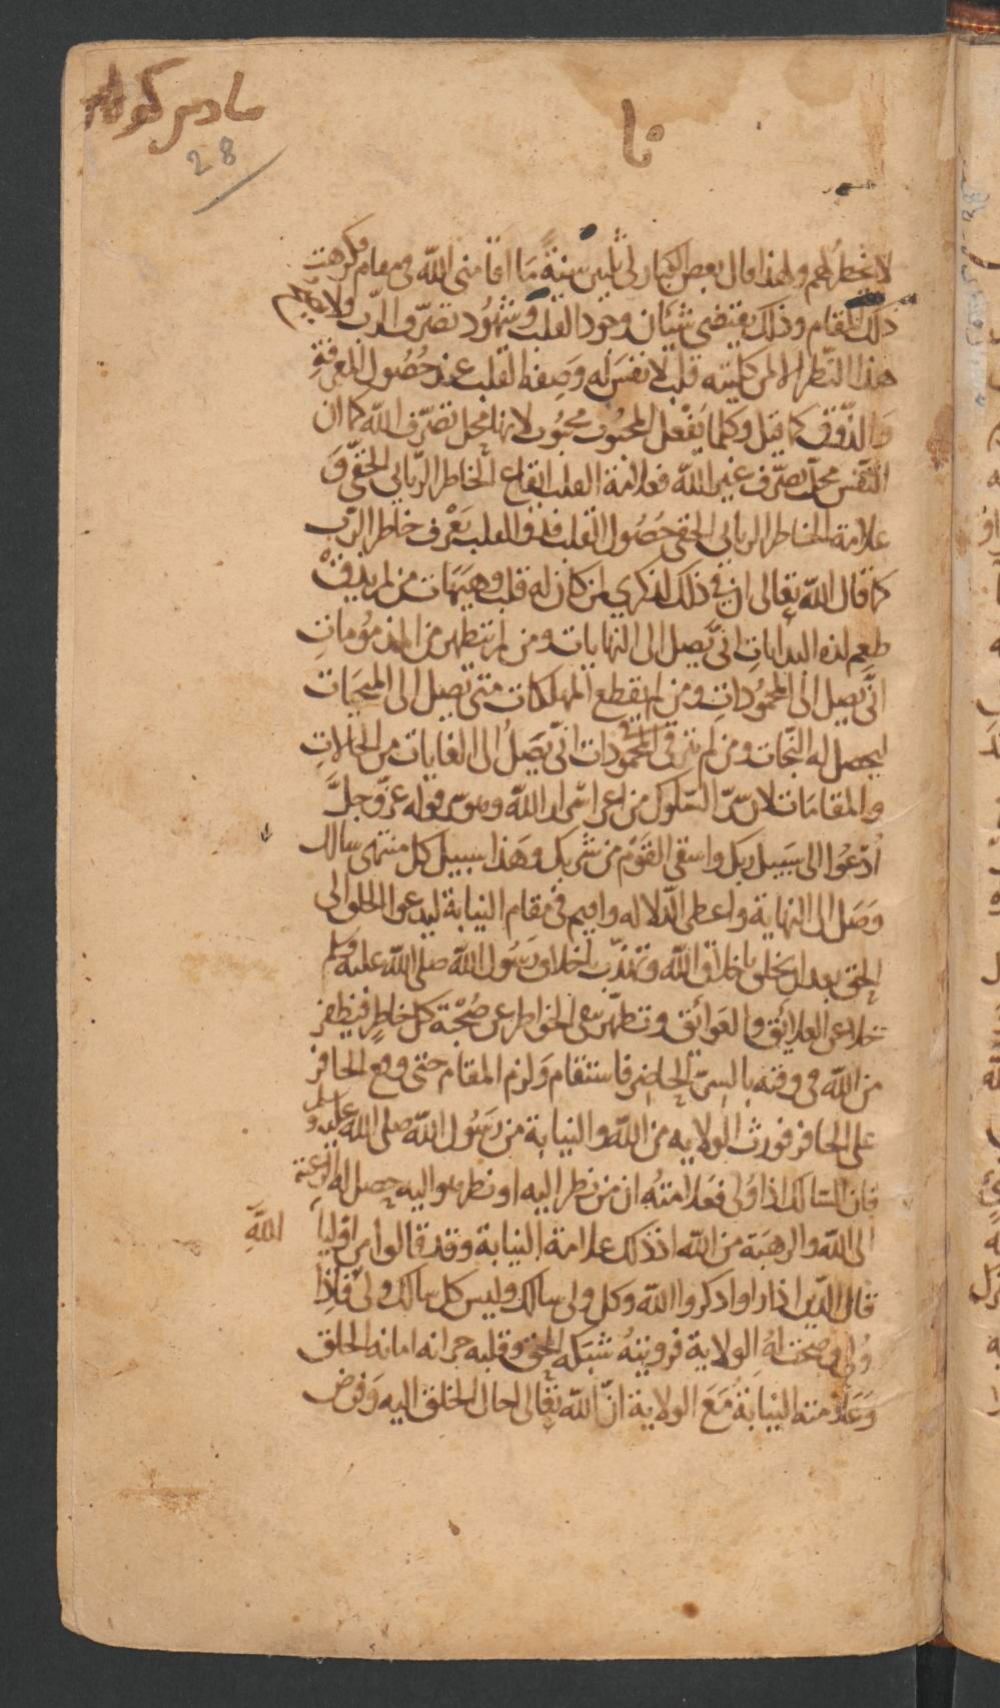 28
نا
لا يخطر لهم ولهذا قال بعض الكبار لي ثلثين سنةً مَا اقامني الله في مقام فكرهت
ذلك المقام وذلك يقتضي شيئان وجود القلب وشهُود تصرّف الربّ ولا يصحّ
هذا النّظر الا لمن كليته قلب لا نفسَ له وَصفه القلب عند حُصُول المعرفةِ
وَالذّوق كما قيل وكلما يَفْعل المحبُوب محبُوب لانها محل تصرّف الله كما ان
النّفسَ محلّ تصرّف غير الله فعلامة القلب ايقاع الخاطر الرّباني الحقّي وَ
علامة الخاطر الرباني الحقي حُصُول القلب فذو القلب يَعْرف خاطر الرّب
كما قال الله تعالى ان في ذلك لذكرى لمن كان له قلب وهيَهَات من لم يذقْ
طعم لذه البدايات انّى يَصِل الى النهايات ومن لم يتطهر من المذمُومات
انّى يَصِل الى المحمُودات ومن لم يقطع المهلكات متى يَصِل الى المنجيَات
ليحصل له النّجات ومن لم يترقى المحمُودات انّى يَصَلُ الى الغايات من الحالاتِ
والمقامَات لان سّرّ السّلوك من اعز اسْرار الله وهو سّر قوله عزّ وجلَّ
اُدْعُوا الى سَبيل ربك واسقى القَوْم من شربك وهَذا سبيل كل منتهى سالك
وَصَل الى النهاية واعطى الدّلاله واقيم في مقام النيابة ليدعوا الخلق الى
الحق بعد ان يخلق باخلاق الله وتهذّب باخلاق رَسُول الله صلى الله عليه وسلم
خلا عن العلائِق والعوَائق وتطهّر بنفي الخواطر عن صُحْبَة كل خاطرٍ فيظفر
من الله في وقته بالسِرّ الحاضِر فاستقام وَلزم المقام حتى وقع الحافر
على الحافر فورث الولايه من الله والنيابة من رَسُول الله صلى الله عليه وسلم
فان السّالك اذا وُلّي فعَلامتهُ ان من نظر اليه او نظر هو اليه حصل له الرغبة
الى الله والرهبَة من الله اذ ذلك علامة النيابة وقد قالوا من اوليأ الله
قال الذين اذا راوا ذكروا الله وكل ولى سالك وليس كل سالك ولىّ فاِذا
وُلّي وصحت لهُ الولاية فرويتهُ شبَكه الحق وقلبه خزانه امانه الخلق
وَعَلامته النيابةَ مَعَ الولاية انّ الله تعَالى احال الخلق اليه وَفوض